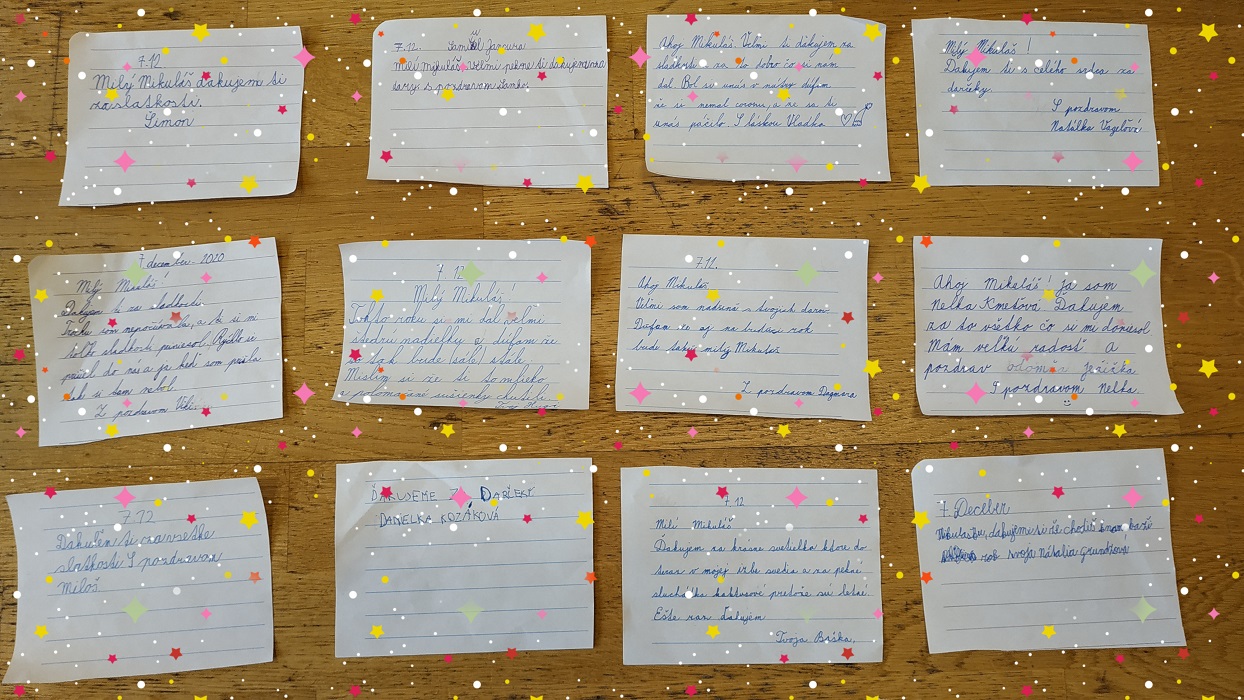 7.12.
Milý Mikuláš ďakujem ti
za sladkosti.
Šimon
7.12. Samuel Jamura
Milý Mikuláš Veľmi pekne ti ďakujem za
dary S pozdravom Samko.
Ahoj Mikuláš. Veľmi ti ďakujem za
sladkosti a za to dobro čo si nam
dal. Bol si unás v núdzi dúfam
že si nemal coronu, a že sa ti
unás páčilo. S láskou Vladka
Milý Mikuláš!
Ďakujem ti s celého srdca za
darčeky.
S pozdravom
Natálka Vageľová
7. december 2020
Milý Mikuláš!
Ďakujem ti za sladkosti.
a že si mi
toľko sladkosti
prišiel do nas a ja keď som prišla
tak si tam nebol.
Z pozdravom
7.12
Milý Mikuláš.
Tohto roku si mi dal veľmi
štedru nadielky a dúfam že
to tak bude ďalej stále.
Mislim si že ti
a polomačané sušienky chutili.
7.12.
Ahoj Mikuláš.
Veľmi som nadšená s tvojich darov.
Dúfam že aj na budúci rok
bude takí milý Mikuláš
Z pozdravom Dagmara
Ahoj Mikuláš! ja som
Nelka Kmeťová Ďakujem
za to všetko čo si mi doniesol
Mám veľkú radosť a
pozdrav odomňa ježiška
S pozdravom Nelka.
7.12
Ďakujem ti za všetke
slatkosti S pozdravom
Miloš
ĎAKUJEME ZA DARČEKY
DANIELKA KOZÁKOVÁ
7.12
Milí Mikuláš
Ďakujem za krásne svetielka ktore do
teraz v mojej izbe svetia a za pekné
sluchátka kaktusové pretože sú letné.
Ešte raz Ďakujem
Tvoja Baška,
7. Deceber
Mikulašku, dakujem si že chodíš knam každí
rok tvoja Natália Grundzová